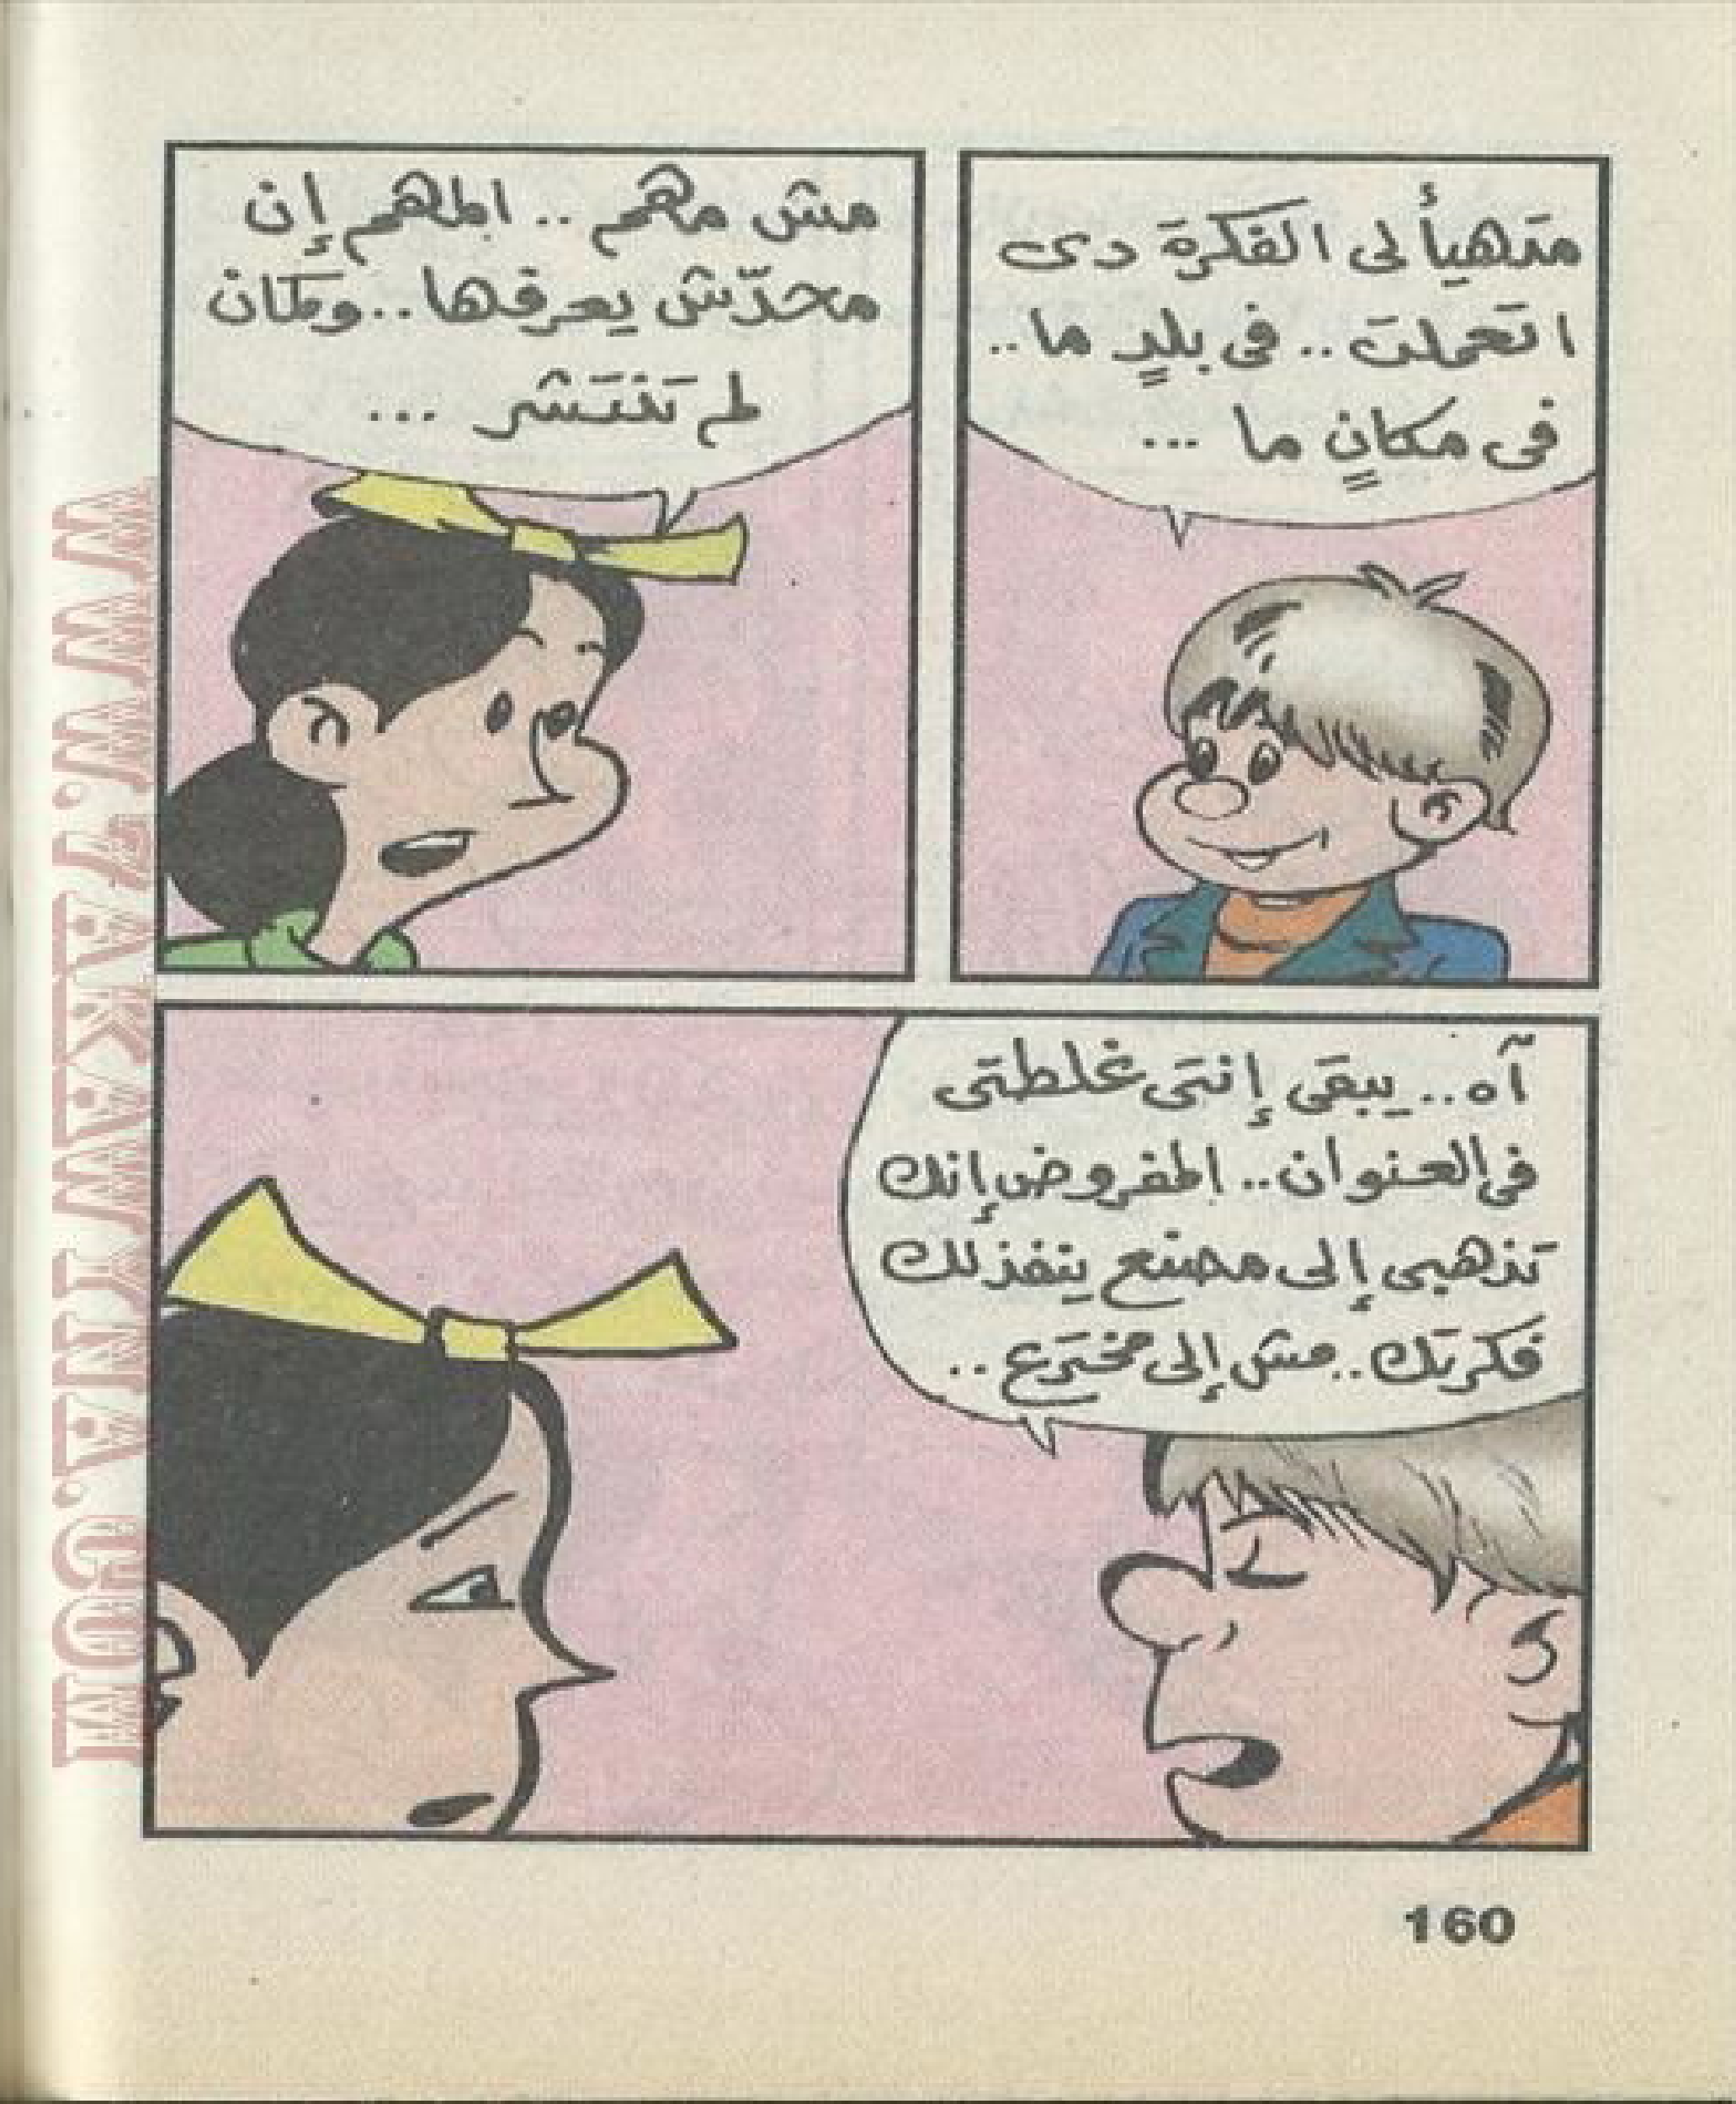 متهيأ لى الفكرة دى
اتعملت .. فى بلدٍ ما ..
فى مكانٍ ما ...
مش مهم .. المهم إن
محدّش يعرفها .. وكمان
لم تنتشر ...
آه .. يبقى إنتى غلطتى
فى العنوان .. المفروض إنك
تذهبى إلى مصنع ينفذ لك
فكرتك .. مش إلى مخترع ..
160
WWW.TAKAWINA.COM